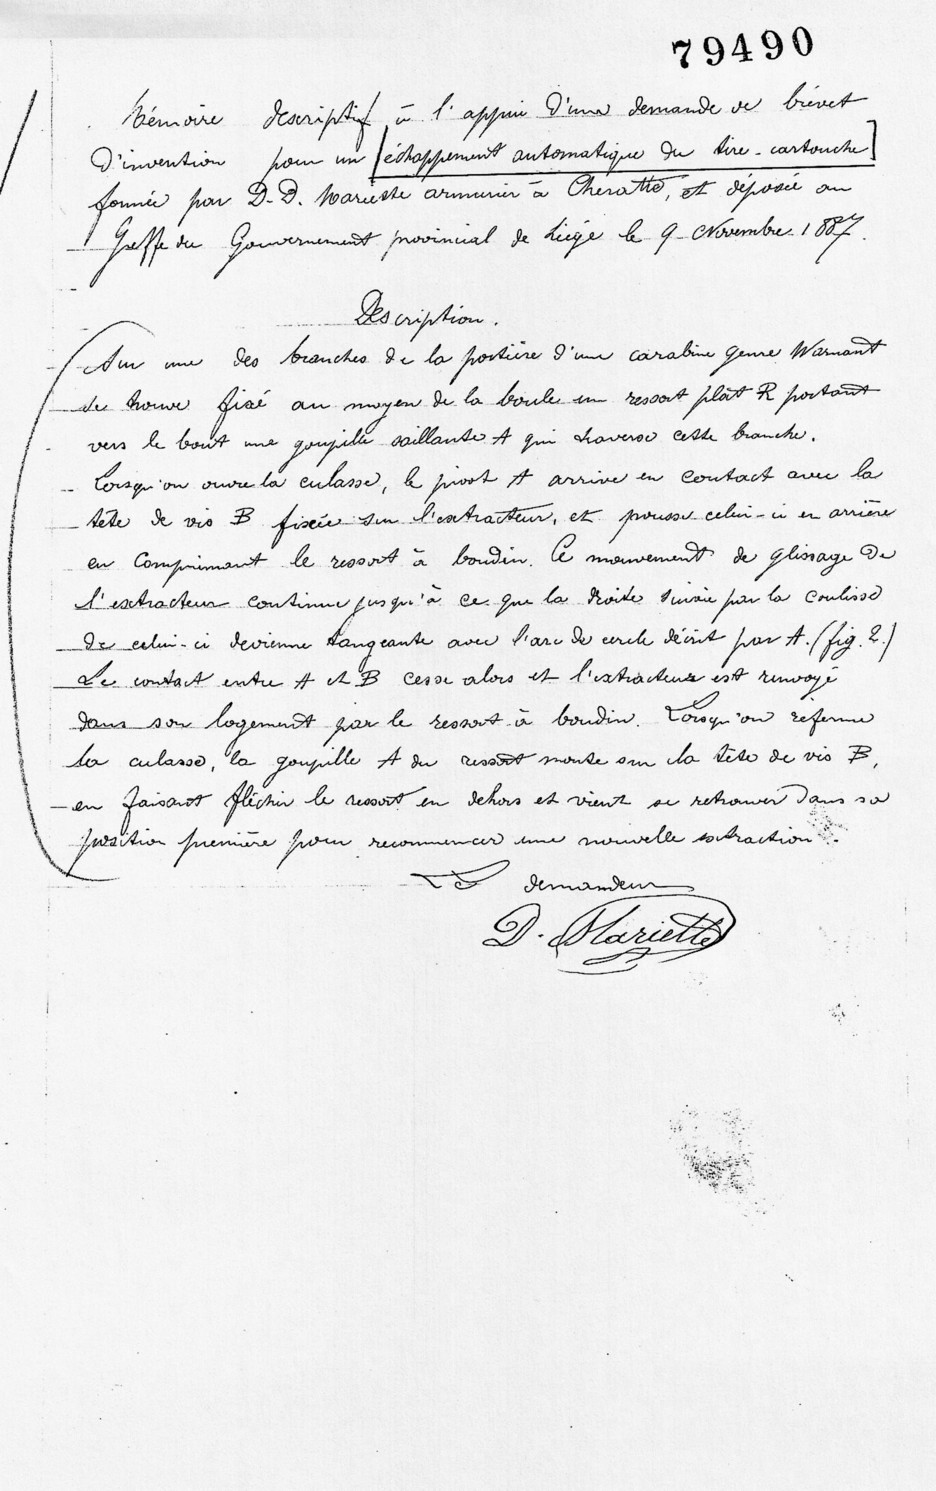 79490
Mémoire descriptif à l'appui d'une demande de brévet
d'invention pour un échappement automatique du tire-cartouche
formée par D. D. Mariette armurier à Cheratte, et déposée au
Greffe du Gouvernement provincial de Liége le 9 Novembre 1887.
Description.
Sur une des branches de la portière d'une carabine genre Warnant
se trouve fixé au moyen de la boule un ressort plat R portant
vers le bout une goupille saillante A qui traverse cette branche.
Lorsqu'on ouvre la culasse, le pivot A arrive en contact avec la
tête de vis B fixée sur l'extracteur, et pousse celui-ci en arrière
en comprimant le ressort à boudin. Ce mouvement de glissage de
l'extracteur continue jusqu'à ce que la droite suivie par la coulisse
de celui-ci devienne tangeante avec l'arc de cercle décrit par A. (fig. 2.)
Le contact entre A et B cesse alors et l'extracteur est renvoyé
dans son logement par le ressort à boudin. Lorsqu'on referme
la culasse, la goupille A du ressort monte sur la tête de vis B,
en faisant fléchir le ressort en dehors et vient se retrouver dans sa
position première pour recommencer une nouvelle extraction.
Le demandeur
D. Mariette